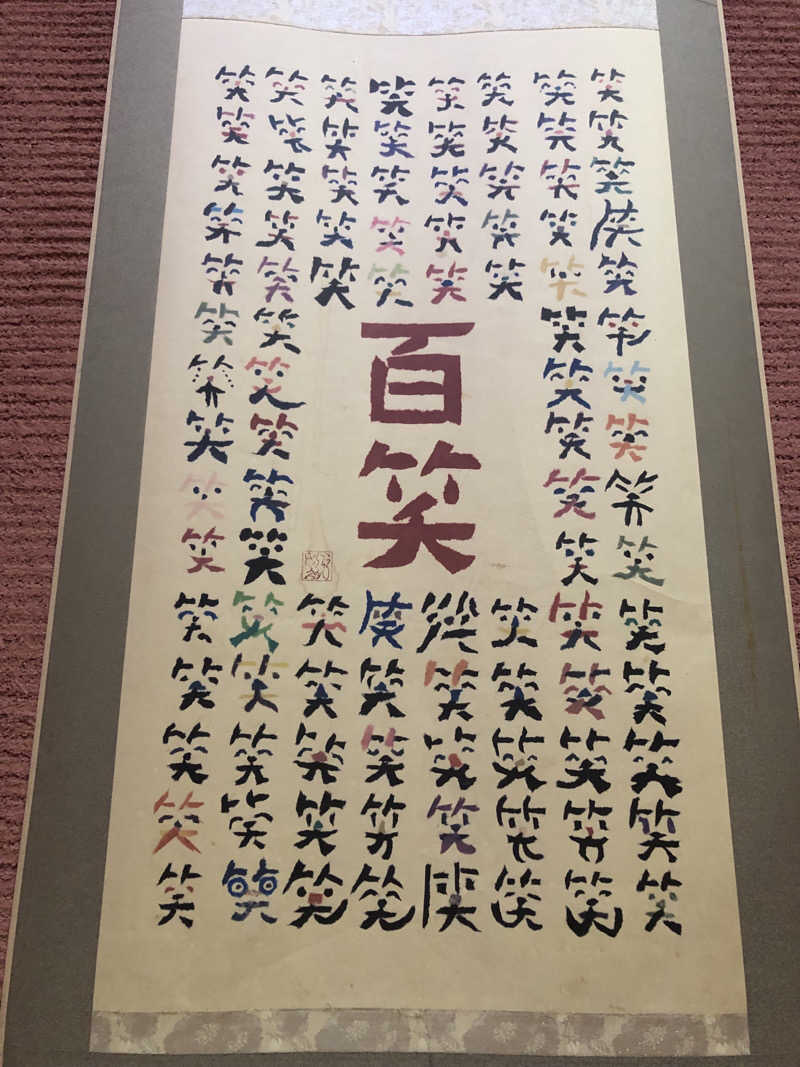 笑笑笑笑笑笑笑笑笑笑笑笑笑笑笑
笑笑笑笑笑笑笑笑笑笑笑笑笑笑笑
笑笑笑笑笑
笑笑笑笑笑
笑笑笑笑笑
笑笑笑笑笑
百笑
笑笑笑笑笑
笑笑笑笑笑
笑笑笑笑笑
笑笑笑笑笑
笑笑笑笑笑笑笑笑笑笑笑笑笑笑笑
笑笑笑笑笑笑笑笑笑笑笑笑笑笑笑